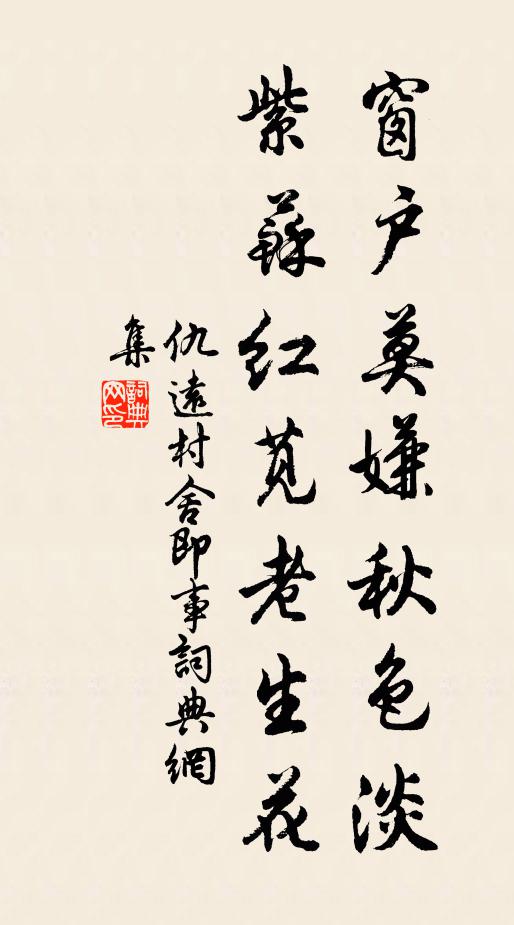 窗户莫嫌秋色淡
紫蘇红苋老生花
仇遠村舍即事詞典網
集
詞典
网印